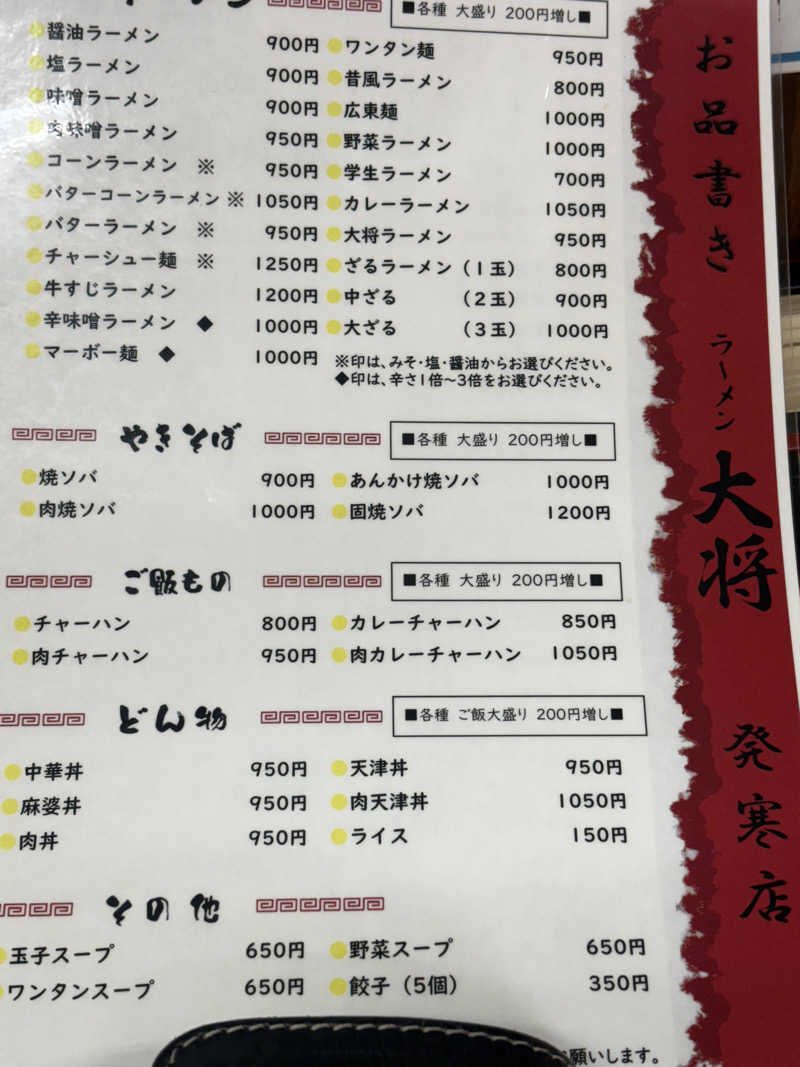 ■各種 大盛り 200円増し■
醤油ラーメン 900円
塩ラーメン 900円
味噌ラーメン 900円
肉味噌ラーメン 950円
コーンラーメン ※ 950円
バターコーンラーメン ※ 1050円
バターラーメン ※ 950円
チャーシュー麺 ※ 1250円
牛すじラーメン 1200円
辛味噌ラーメン ◆ 1000円
マーボー麺 ◆ 1000円
ワンタン麺 950円
昔風ラーメン 800円
広東麺 1000円
野菜ラーメン 1000円
学生ラーメン 700円
カレーラーメン 1050円
大将ラーメン 950円
ざるラーメン(1玉) 800円
中ざる (2玉) 900円
大ざる (3玉) 1000円
※印は、みそ・塩・醤油からお選びください。
◆印は、辛さ1倍~3倍をお選びください。
やきそば
■各種 大盛り 200円増し■
焼ソバ 900円
肉焼ソバ 1000円
あんかけ焼ソバ 1000円
固焼ソバ 1200円
ご飯もの
■各種 大盛り 200円増し■
チャーハン 800円
肉チャーハン 950円
カレーチャーハン 850円
肉カレーチャーハン 1050円
どん物
■各種 ご飯大盛り 200円増し■
中華丼 950円
麻婆丼 950円
肉丼 950円
天津丼 950円
肉天津丼 1050円
ライス 150円
その他
玉子スープ 650円
ワンタンスープ 650円
野菜スープ 650円
餃子(5個) 350円
お願いします。
お品書き
ラーメン
大将
発寒店